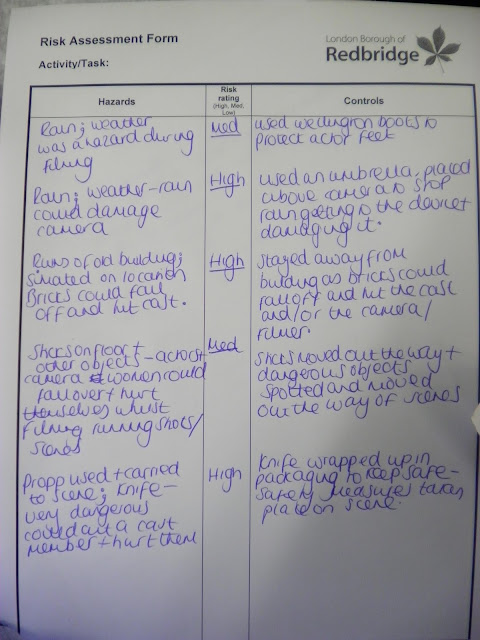 Risk Assessment Form
London Borough of
Redbridge
Activity/Task:
Hazards
Risk
rating
(High, Med,
Low)
Controls
Rain; weather
was a hazard during
filming
Med
used wellington boots to
protect actor feet
Rain; weather - rain
could damage
camera
High
used an umbrella, placed
above camera to stop
rain getting to the device +
damaging it.
Ruins of old building;
situated on location
Bricks could fall
off and hit cast.
High
stayed away from
building as bricks could
fall off and hit the cast
and/or the camera/
filmer.
Sticks on floor +
other objects - actors +
camera women could
fall over + hurt
themselves whilst
filming running shots/
scenes
Med
sticks moved out the way +
dangerous objects
spotted and moved
out the way of scenes
Propp used + carried
to scene; knife -
very dangerous
could cut a cast
member + hurt them
High
Knife wrapped up in
packaging to keep safe -
safety measures taken
place on scene.